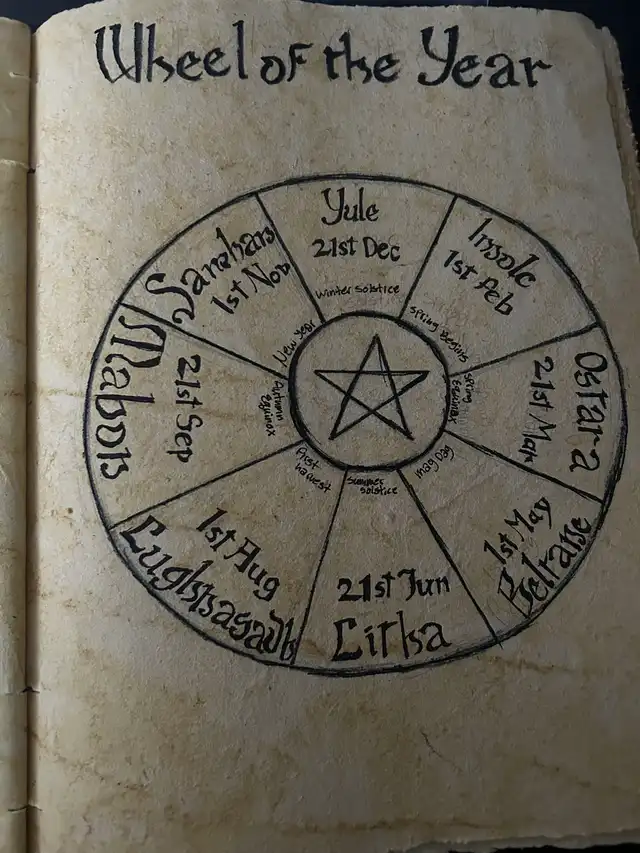 Wheel of the Year
Yule
21st Dec
Winter Solstice
Imbolc
1st Feb
Spring Begins
Ostara
21st Mar
Spring
Equinox
1st May
Beltane
May Day
Summer
Solstice
21st Jun
Litha
First
harvest
1st Aug
Lughnasadh
Autumn
Equinox
21st Sep
Mabon
Samhain
1st Nov
New Year